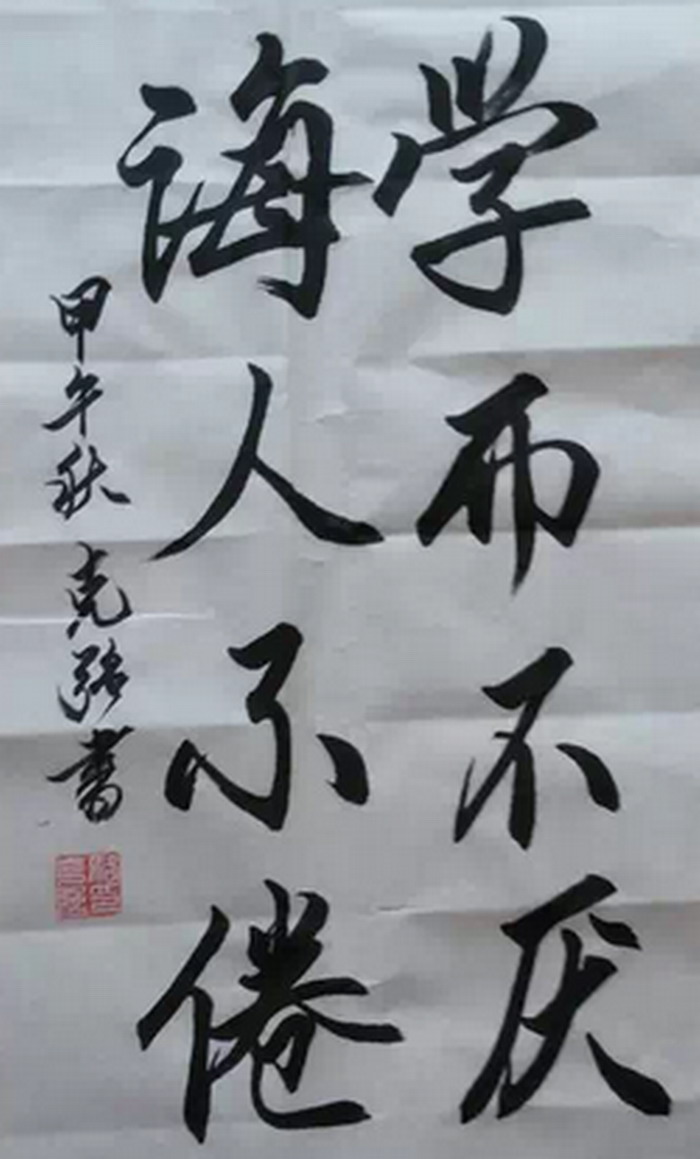 学而不厌
诲人不倦
甲午秋克强书